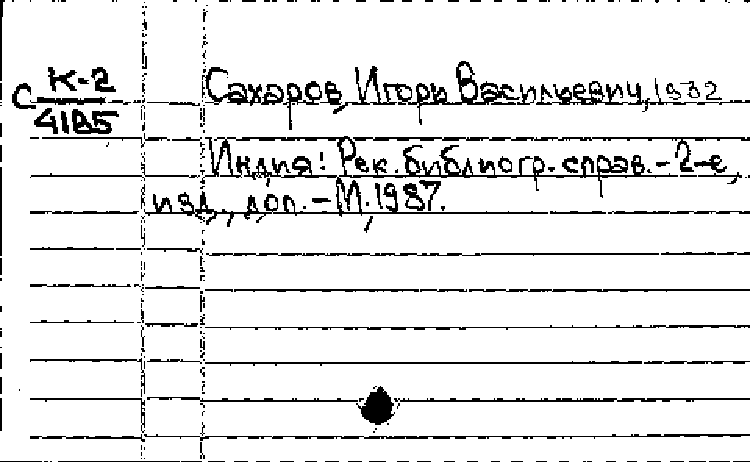 С К-2
4185
Сахаров, Игорь Васильевич, 1932
Индия: Рек. библиогр. справ. - 2-е,
изд., доп. - М, 1987.